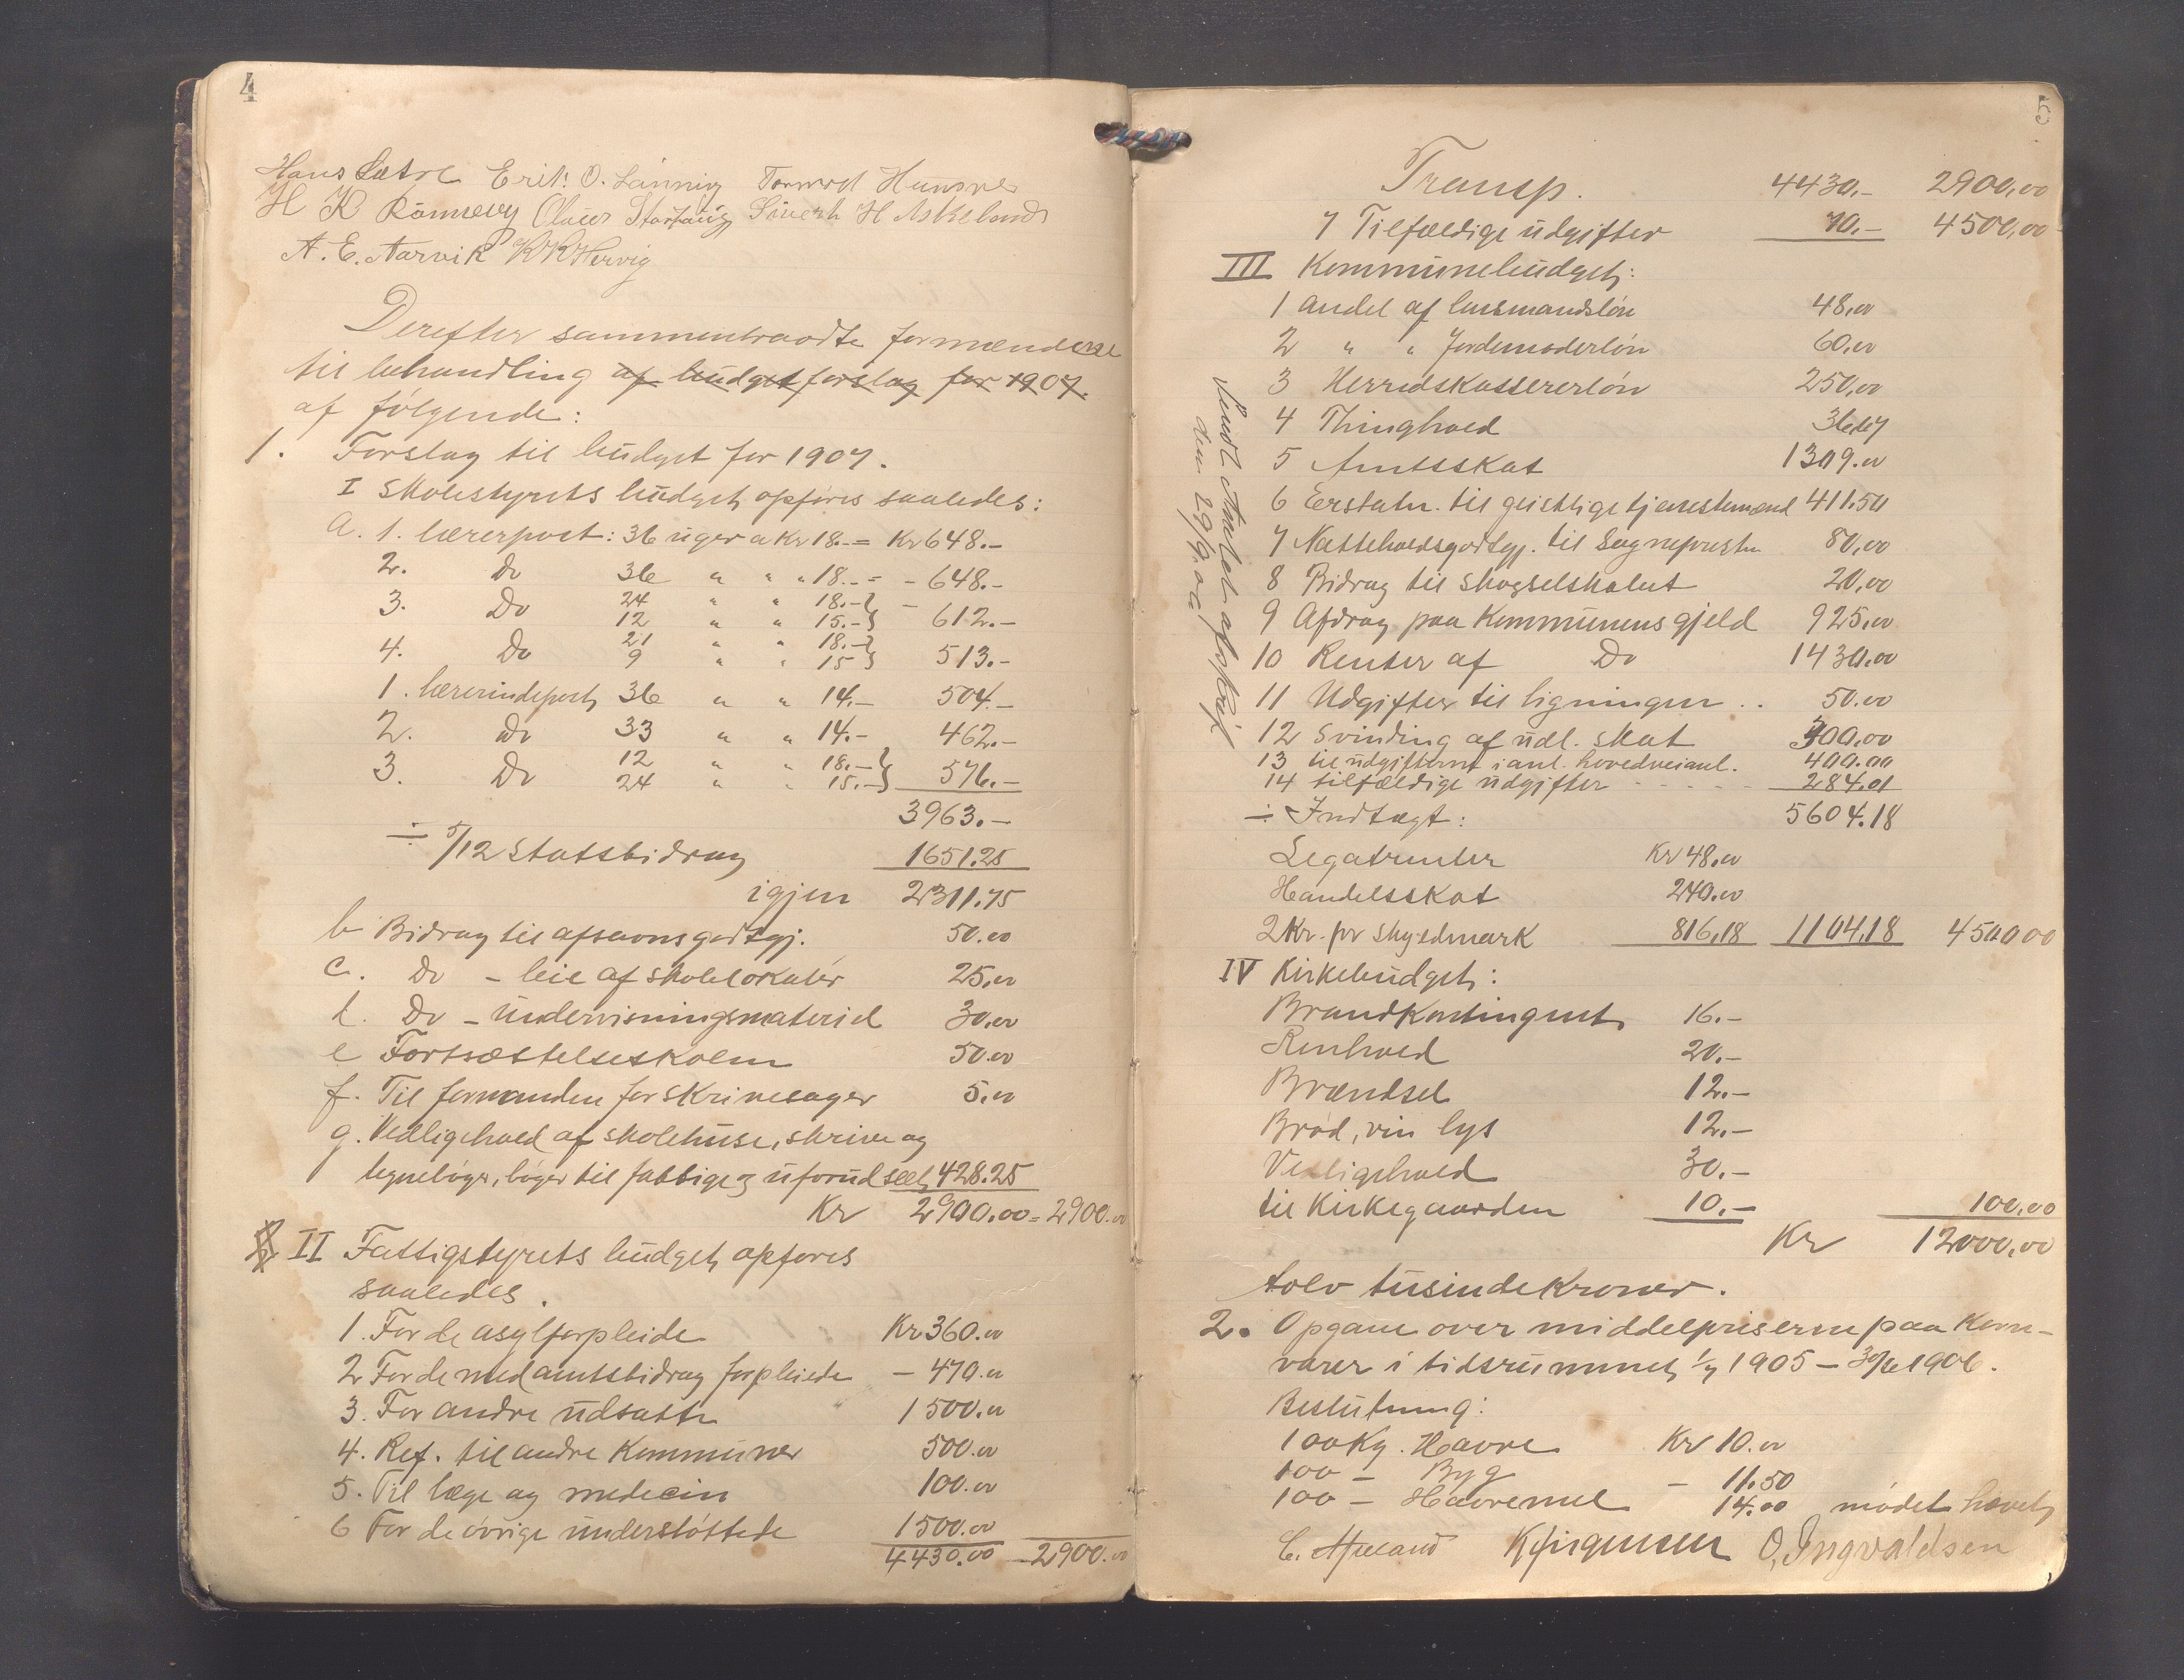 4
Hans Sætre Erik O. Lønning Tormod Hunsnes
H K Rönnevig Olaus Storhaug Siverh H Askeland
A. E. Aarvik K K Hervig
Derefter sammentraadte formændene
til behandling af budgetforslag for 1907.
af følgende:
1. Forslag til budget for 1907.
I Skolestyrets budget opføres saaledes:
a. 1. lærerpost: 36 uger a Kr 18.- = Kr 648.-
2. Do 36 " " " 18.- = - 648.-
3. Do 24 " " 18.- } -
12 " " 15.- } 612.-
4. Do 21 " " 18.- }
9 " " 15 } 513.-
1. lærerindepost 36 " " 14.- 504.-
2. Do 33 " " 14.- 462.-
3. Do 12 " " 18.- }
24 " " 15.- } 576.-
3963.-
÷ 5/12 Statsbidrag 1651.25
igjen 2311.75
b Bidrag til afsavnsgodtgj. 50.00
c. Do - leie af skolelokaler 25,00
d. Do - undervisningsmateriel 30,00
e Fortsættelsesskolen 50.00
f. Til formanden for skrivesager 5,00
g. Vedligehold af skolehuse, skrive og
regnebøger, bøger til fattige og uforudseet 428.25
Kr 2900,00 = 2900.00
II Fattigstyrets budget opføres
saaledes.
1. For de asylforpleide Kr 360.00
2 For de med amtsbidrag forpleiede - 470.00
3. For andre udsatte 1500.00
4. Ref. til andre Kommuner 500.00
5. Til læge og medecin 100.00
6 For de øvrige understøttede 1500.00
4430.00 - 2900.00
5
Transp. 4430.- 2900,00
7 Tilfældige udgifter 70.- 4500,00
III Kommunebudget:
1 Andel af lensmandsløn 48,00
2 " " Jordemoderløn 60,00
3 Herredskassererløn 250,00
4 Thinghold 36,67
5 Amtsskat 1309.00
6 Erstatn. til geistlige tjenestemænd 411.50
7 Nattholdsgodtgj. til Sognepresten 80,00
8 Bidrag til Skogselskabet 20,00
9 Afdrag paa Kommunens gjeld 925,00
10 Renter af Do 1430,00
11 Udgifter til ligningen .. 50.00
12 Svinding af udl. skat 300,00
13 til udgifterne i anl. hovedveianl. 400.00
14 tilfældige udgifter - - - - - 284.01
÷ Indtægt: 5604.18
Legatrenter Kr 48,00
Handelsskat 240.00
2 Kr. pr skyldmark 816,18 1104,18 4500 00
IV Kirkebudget:
Brandkontingent 16.-
Renhold 20.-
Brændsel 12.-
Brød, vin lys 12.-
Vedligehold 30.-
til Kirkegaarden 10.- 100,00
Kr 12000,00
tolv tusinde Kroner.
2. Opgave over middelpriserne paa Korn-
varer i tidsrummet 1/7 1905 - 30/6 1906.
Beslutning:
100 Kg. Havre Kr 10.00
100 - Byg - 11.50
100 - Havremel 14.00 mødet hævet
K Jørgensen O. Ingvaldsen
Sendt Amtet afskrift
den 29/9.06